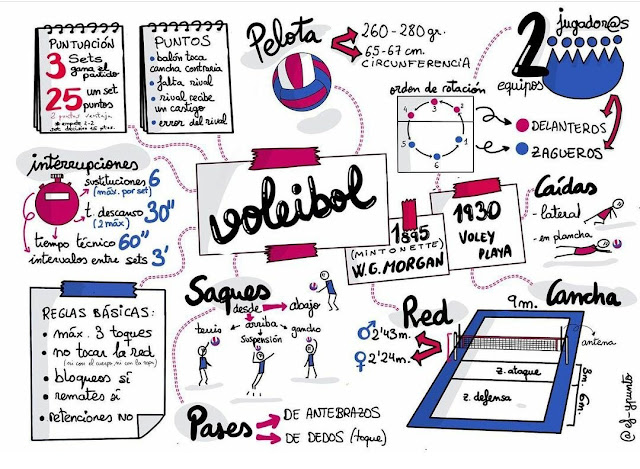 PUNTUACIÓN
3 Sets
gana el
partido
25 un set
puntos
2 puntos ventaja
PUNTOS
• balón toca
cancha contraria
• falta rival
• rival recibe
un castigo
• error del rival
Pelota
260-280 gr.
65-67 cm.
CIRCUNFERENCIA
2 jugador@s
equipos
orden de rotación
4 3 2
5 6 1
DELANTEROS
ZAGUEROS
interrupciones
sustituciones 6
(máx. por set)
t. descanso 30''
(2 máx)
tiempo técnico 60''
intervalos entre sets 3'
voleibol
1895
(MINTONETTE)
W.G. MORGAN
1930
VOLEY
PLAYA
Caídas
- lateral
- en plancha
REGLAS BÁSICAS:
• máx. 3 toques
• no tocar la red
(ni con el cuerpo, ni con la ropa)
• bloqueos sí
• remates sí
• retenciones NO
Saques
desde
abajo
arriba
tenis
suspensión
gancho
Pases
DE ANTEBRAZOS
DE DEDOS (toque)
Red
♂ 2'43m.
♀ 2'24m.
Cancha
9m.
antena
z. ataque
3m
z. defensa
6m.
@ef-ypunto